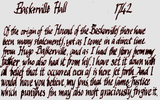 Baskerville Hall 1742
Of the origin of the Hound of the Baskervilles there have
been many statements, yet as I come in a direct line
from Hugo Baskerville, and as I had the story from my
father, who also had it from his, I have set it down with
all belief that it occurred even as is here set forth. And I
would have you believe, my sons, that the same Justice
which punishes sin may also most graciously forgive it